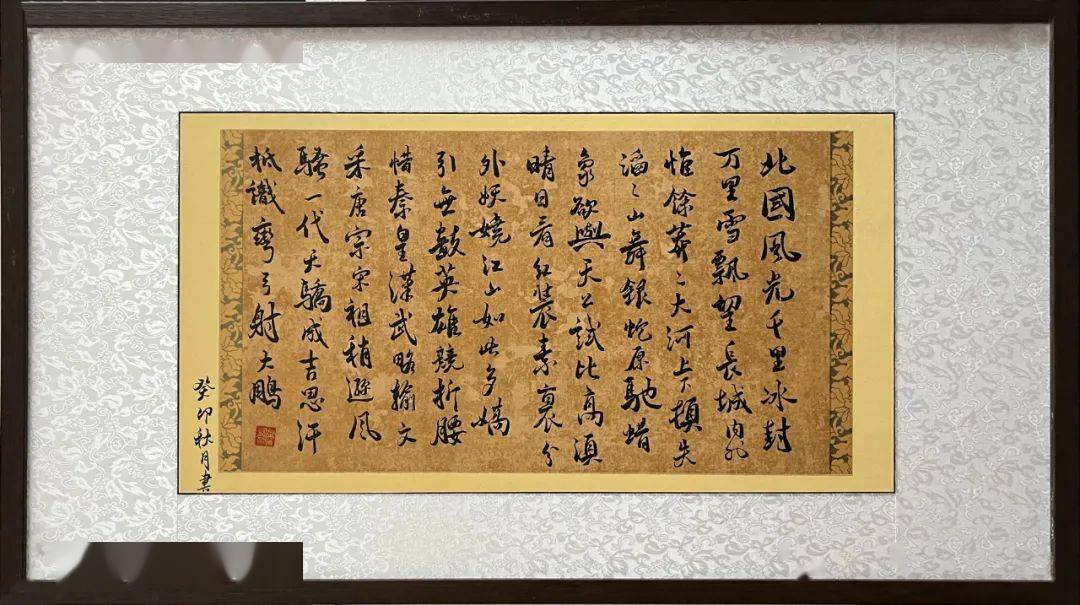 北國風光千里冰封
万里雪飄望長城内外
惟餘莽々大河上下頓失
滔々山舞銀蛇原馳蜡
象欲與天公試比高須
晴日看紅裝素裹分
外妖嬈江山如此多嬌
引無數英雄競折腰
惜秦皇漢武略輸文
采唐宗宋祖稍遜風
騷一代天驕成吉思汗
祇識彎弓射大鵰
癸卯秋月書